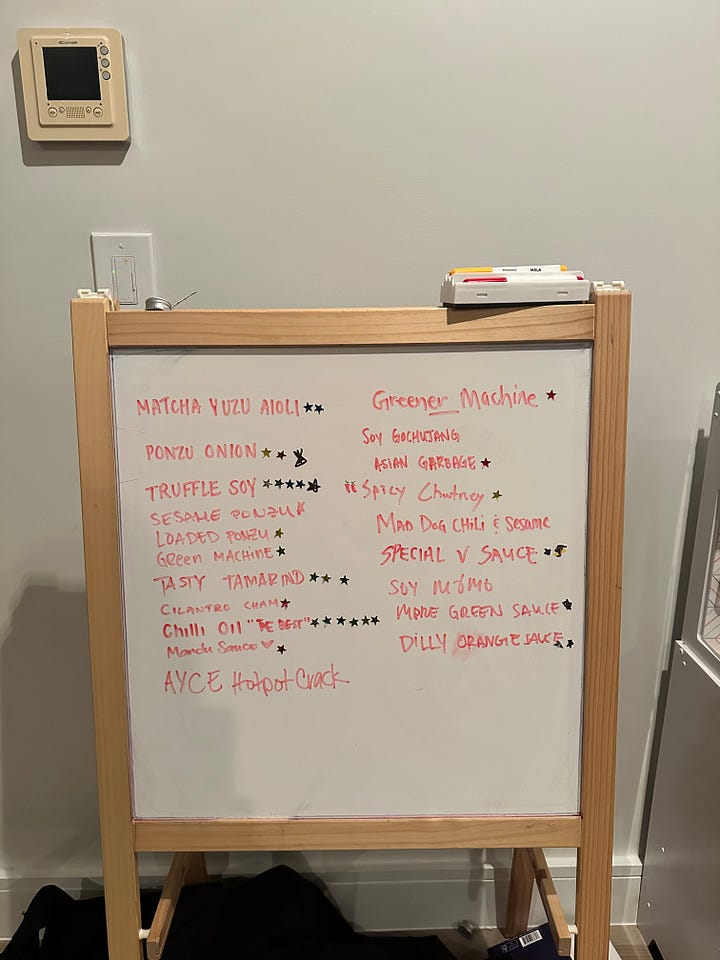 Comelit
MALA
MATCHA YUZU AIOLI
PONZU ONION
TRUFFLE SOY
SESAME PONZU
LOADED PONZU
Green MACHINE
TASTY TAMARIND
CILANTRO CHAM
Chilli Oil "THE BEST"
Mandu Sauce ♡
AYCE Hotpot Crack
Greener Machine
Soy GOCHUJANG
ASIAN GARBAGE
Spicy Chutney
MAD DOG CHILI & SESAME
SPECIAL V SAUCE
SOY MOMO
MORE GREEN SAUCE
DILLY ORANGE SAUCE